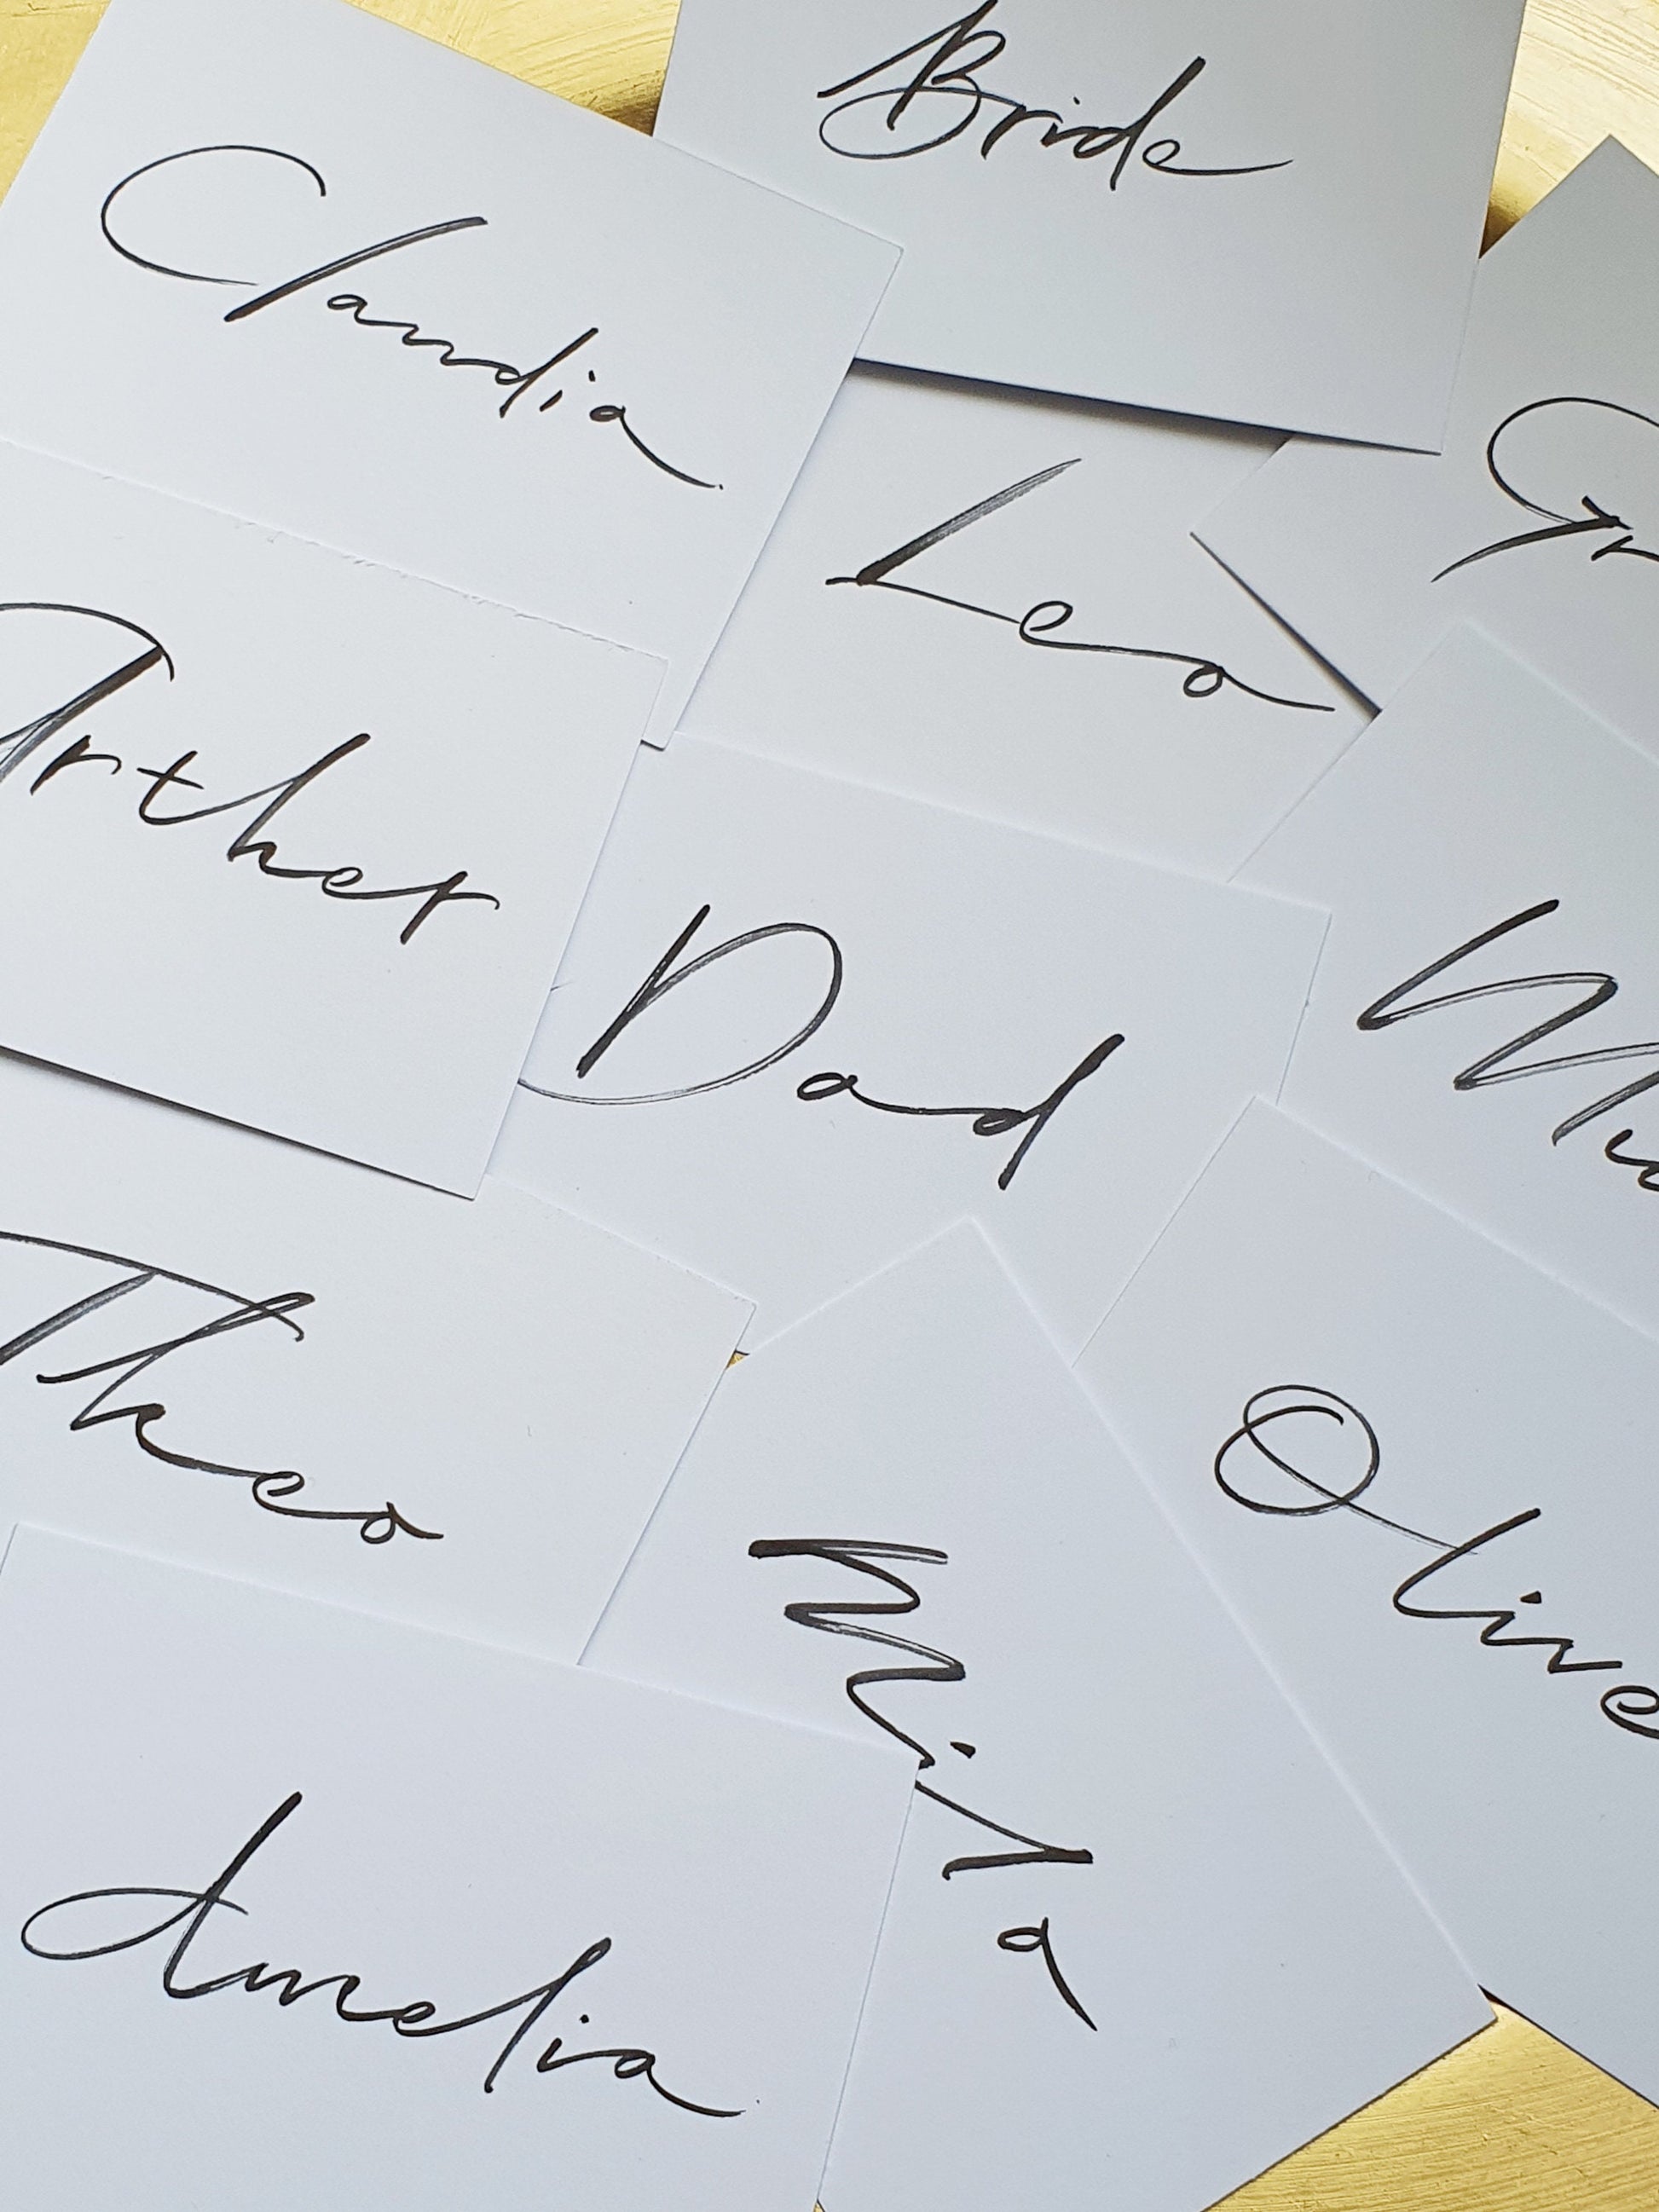 Bride
Claudia
Gr
Leo
Arther
Dad
Theo
Olive
Mila
Amelia